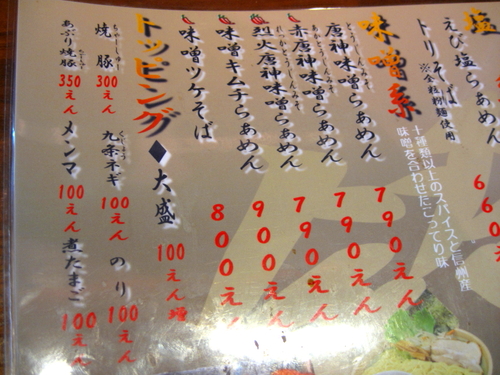 塩
えび塩らあめん
トリそば
※全粒粉麺使用
味噌系
十種類以上のスパイスと信州産
味噌を合わせたこってり味
唐神味噌らあめん 790えん
赤唐神味噌らあめん 790えん
烈火唐神味噌らあめん 790えん
味噌キムチらあめん 900えん
味噌ツケそば 800えん
トッピング◆大盛 100えん増
焼豚 300えん 九条ネギ 100えん のり 100えん
あぶり焼豚 350えん メンマ 100えん 煮たまご 100えん